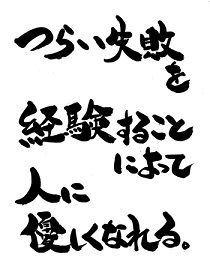 つらい失敗
を
経験すること
によって
人に
優しくなれる。